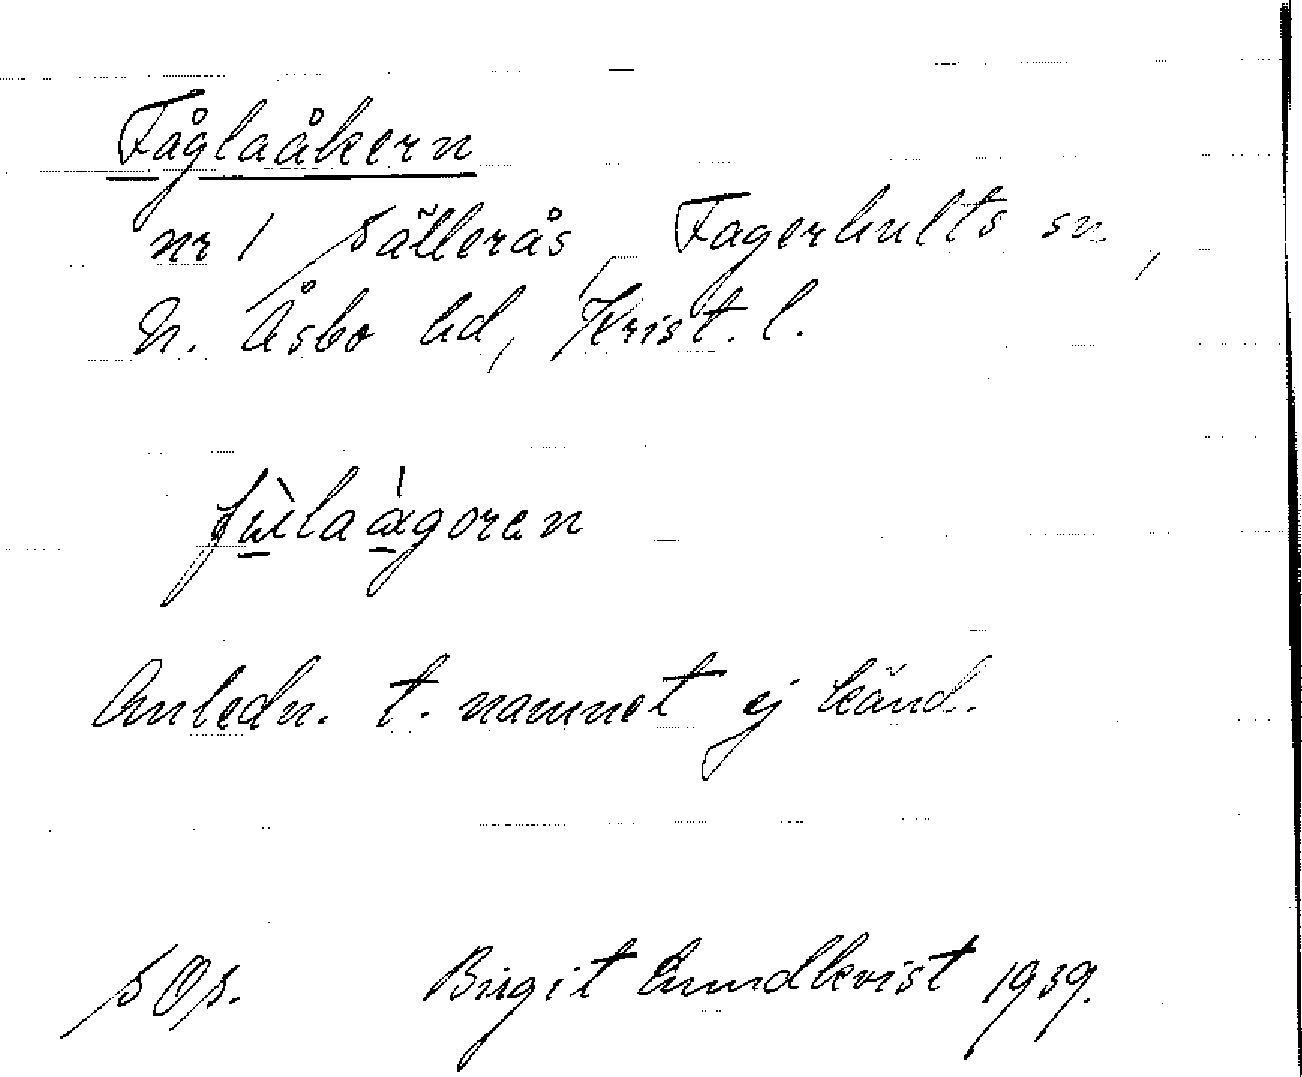 Fåglaåkern
nr 1 Sällerås, Fagerhults sn,
N. Åsbo hd, Krist. l.
Anledn. t. namnet ej känd.
SOs. Birgit Lundkvist 1939.